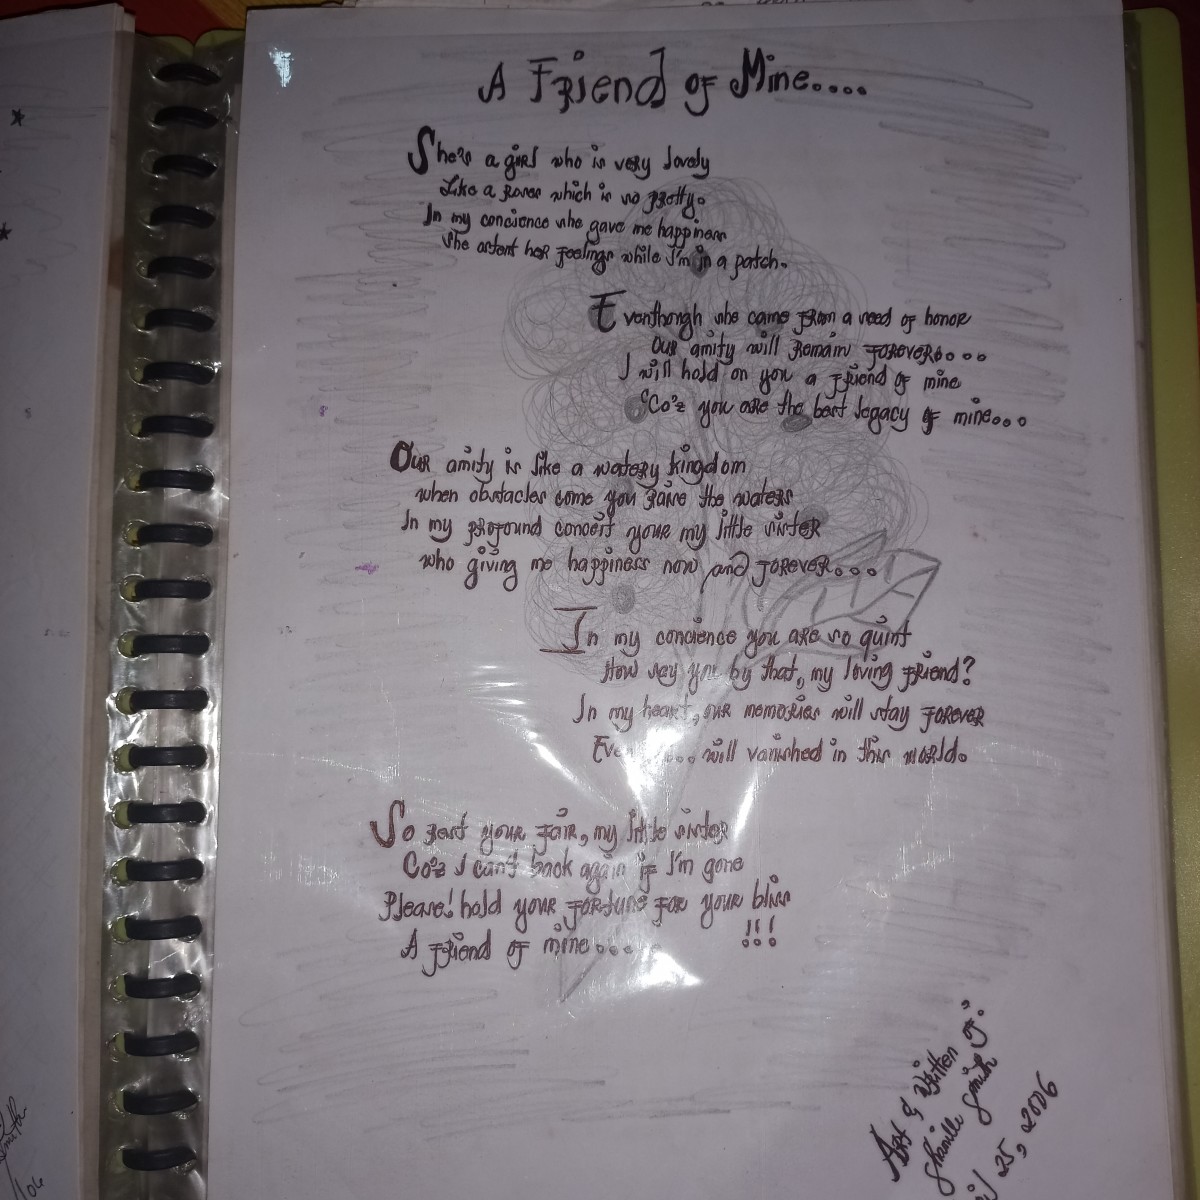 A Friend of Mine....
She's a girl who is very lovely
Like a roses which is so pretty.
In my concience she gave me happiness
She extent her feelings while I'm in a patch.
Eventhough she came from a seed of honor
Our amity will remain forever....
I will hold on you a friend of mine
'Co'z you are the best legacy of mine...
Our amity is like a watery kingdom
when obstacles come you raise the waters
In my profound conceit your my little sister
who giving me happiness now and forever....
In my concience you are so quint
How say you by that, my loving friend?
In my heart, our memories will stay forever
... will vanished in this world.
So rest your fair, my little sister
Co'z I can't back again if I'm gone
Please! hold your fortune for your bliss
A friend of mine..... !!!
Art & Written of:
Smith
25, 2006
/06